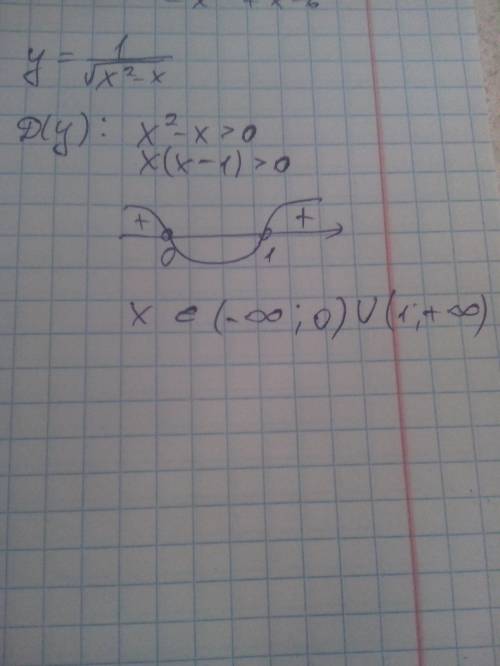 y = 1/√(x² - x)
D(y): x² - x > 0
x(x - 1) > 0
+ +
0 1
x ∈ (-∞; 0) ∪ (1; +∞)